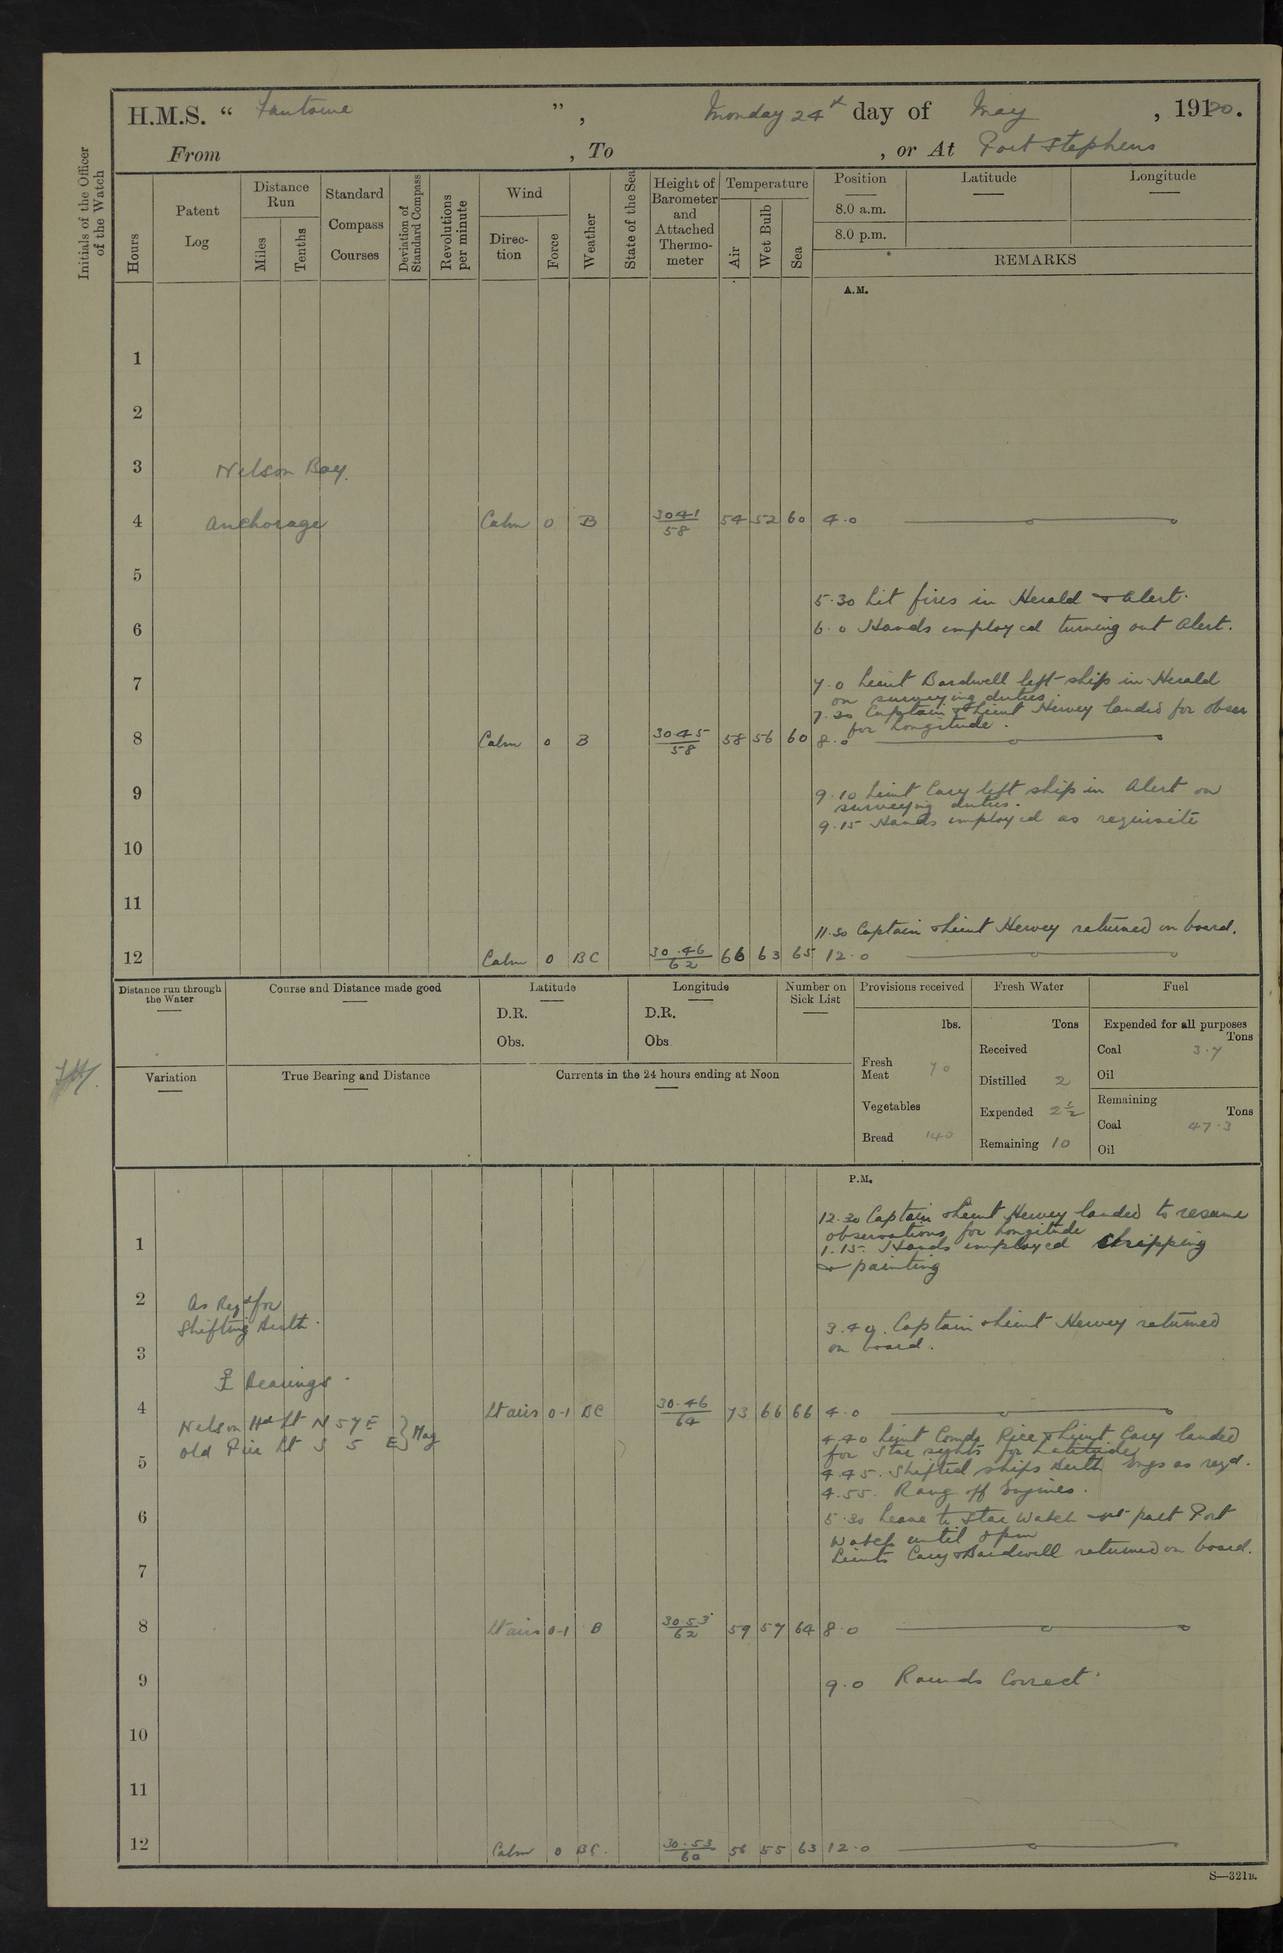 H.M.S. “ Fantome ”, Monday 24th day of May, 1920.
From , To , or At Port Stephens
Initials of the Officer of the Watch
Hours
Patent Log
Distance Run
Miles
Tenths
Standard Compass Courses
Deviation of Standard Compass
Revolutions per minute
Wind
Direction
Force
Weather
State of the Sea
Height of Barometer and Attached Thermometer
Temperature
Air
Wet Bulb
Sea
Position Latitude Longitude
8.0 a.m.
8.0 p.m.
REMARKS
A.M.
1
2
3 Nelson Bay.
4 Anchorage Calm 0 B 3041/58 54 52 60 4.0
5
5.30 Lit fires in Herald & Alert.
6 6.0 Hands employed turning out Alert.
7 7.0 Lieut Bardwell left ship in Herald
on surveying duties.
7.30 Captain & Lieut Hervey landed for obser
for Longitude.
8 Calm 0 B 3045/58 58 56 60 8.0
9 9.10 Lieut Cary left ship in Alert on
surveying duties.
9.15 Hands employed as requisite
10
11
11.30 Captain & Lieut Hervey returned on board.
12 Calm 0 BC 30.46/62 66 63 65 12.0
Distance run through the Water
Course and Distance made good
Latitude
D.R.
Obs.
Longitude
D.R.
Obs
Number on Sick List
Provisions received
lbs.
Fresh Meat 70
Vegetables
Bread 140
Fresh Water
Tons
Received
Distilled 2
Expended 2½
Remaining 10
Fuel
Expended for all purposes
Tons
Coal 3.7
Oil
Remaining
Tons
Coal 47.3
Oil
Variation
True Bearing and Distance
Currents in the 24 hours ending at Noon
P.M.
12.30 Captain & Lieut Hervey landed to resume
observations for Longitude
1 1.15. Hands employed chipping
& painting
2 As Reqd for
Shifting Berth.
3.40. Captain & Lieut Hervey returned
on board.
3
Bearings.
4 Lt airs 0-1 BC 30.46/64 73 66 66 4.0
Nelson Hd Lt N 57 E } Mag
Old Pier Lt S 5 E
4.40 Lieut Comdr Rice & Lieut Cary landed
for Star sights for Latitude
5 4.45. Shifted ships berth Engs as reqd.
4.55. Rang off Engines.
6 5.30 Leave to Star Watch & part Port
Watch until
Lieuts Cary & Bardwell returned on board.
7
8 Lt airs 0-1 B 30.53/62 59 57 64 8.0
9 9.0 Rounds Correct.
10
11
12 Calm 0 BC. 30.53/60 56 55 63 12.0
S—321B.